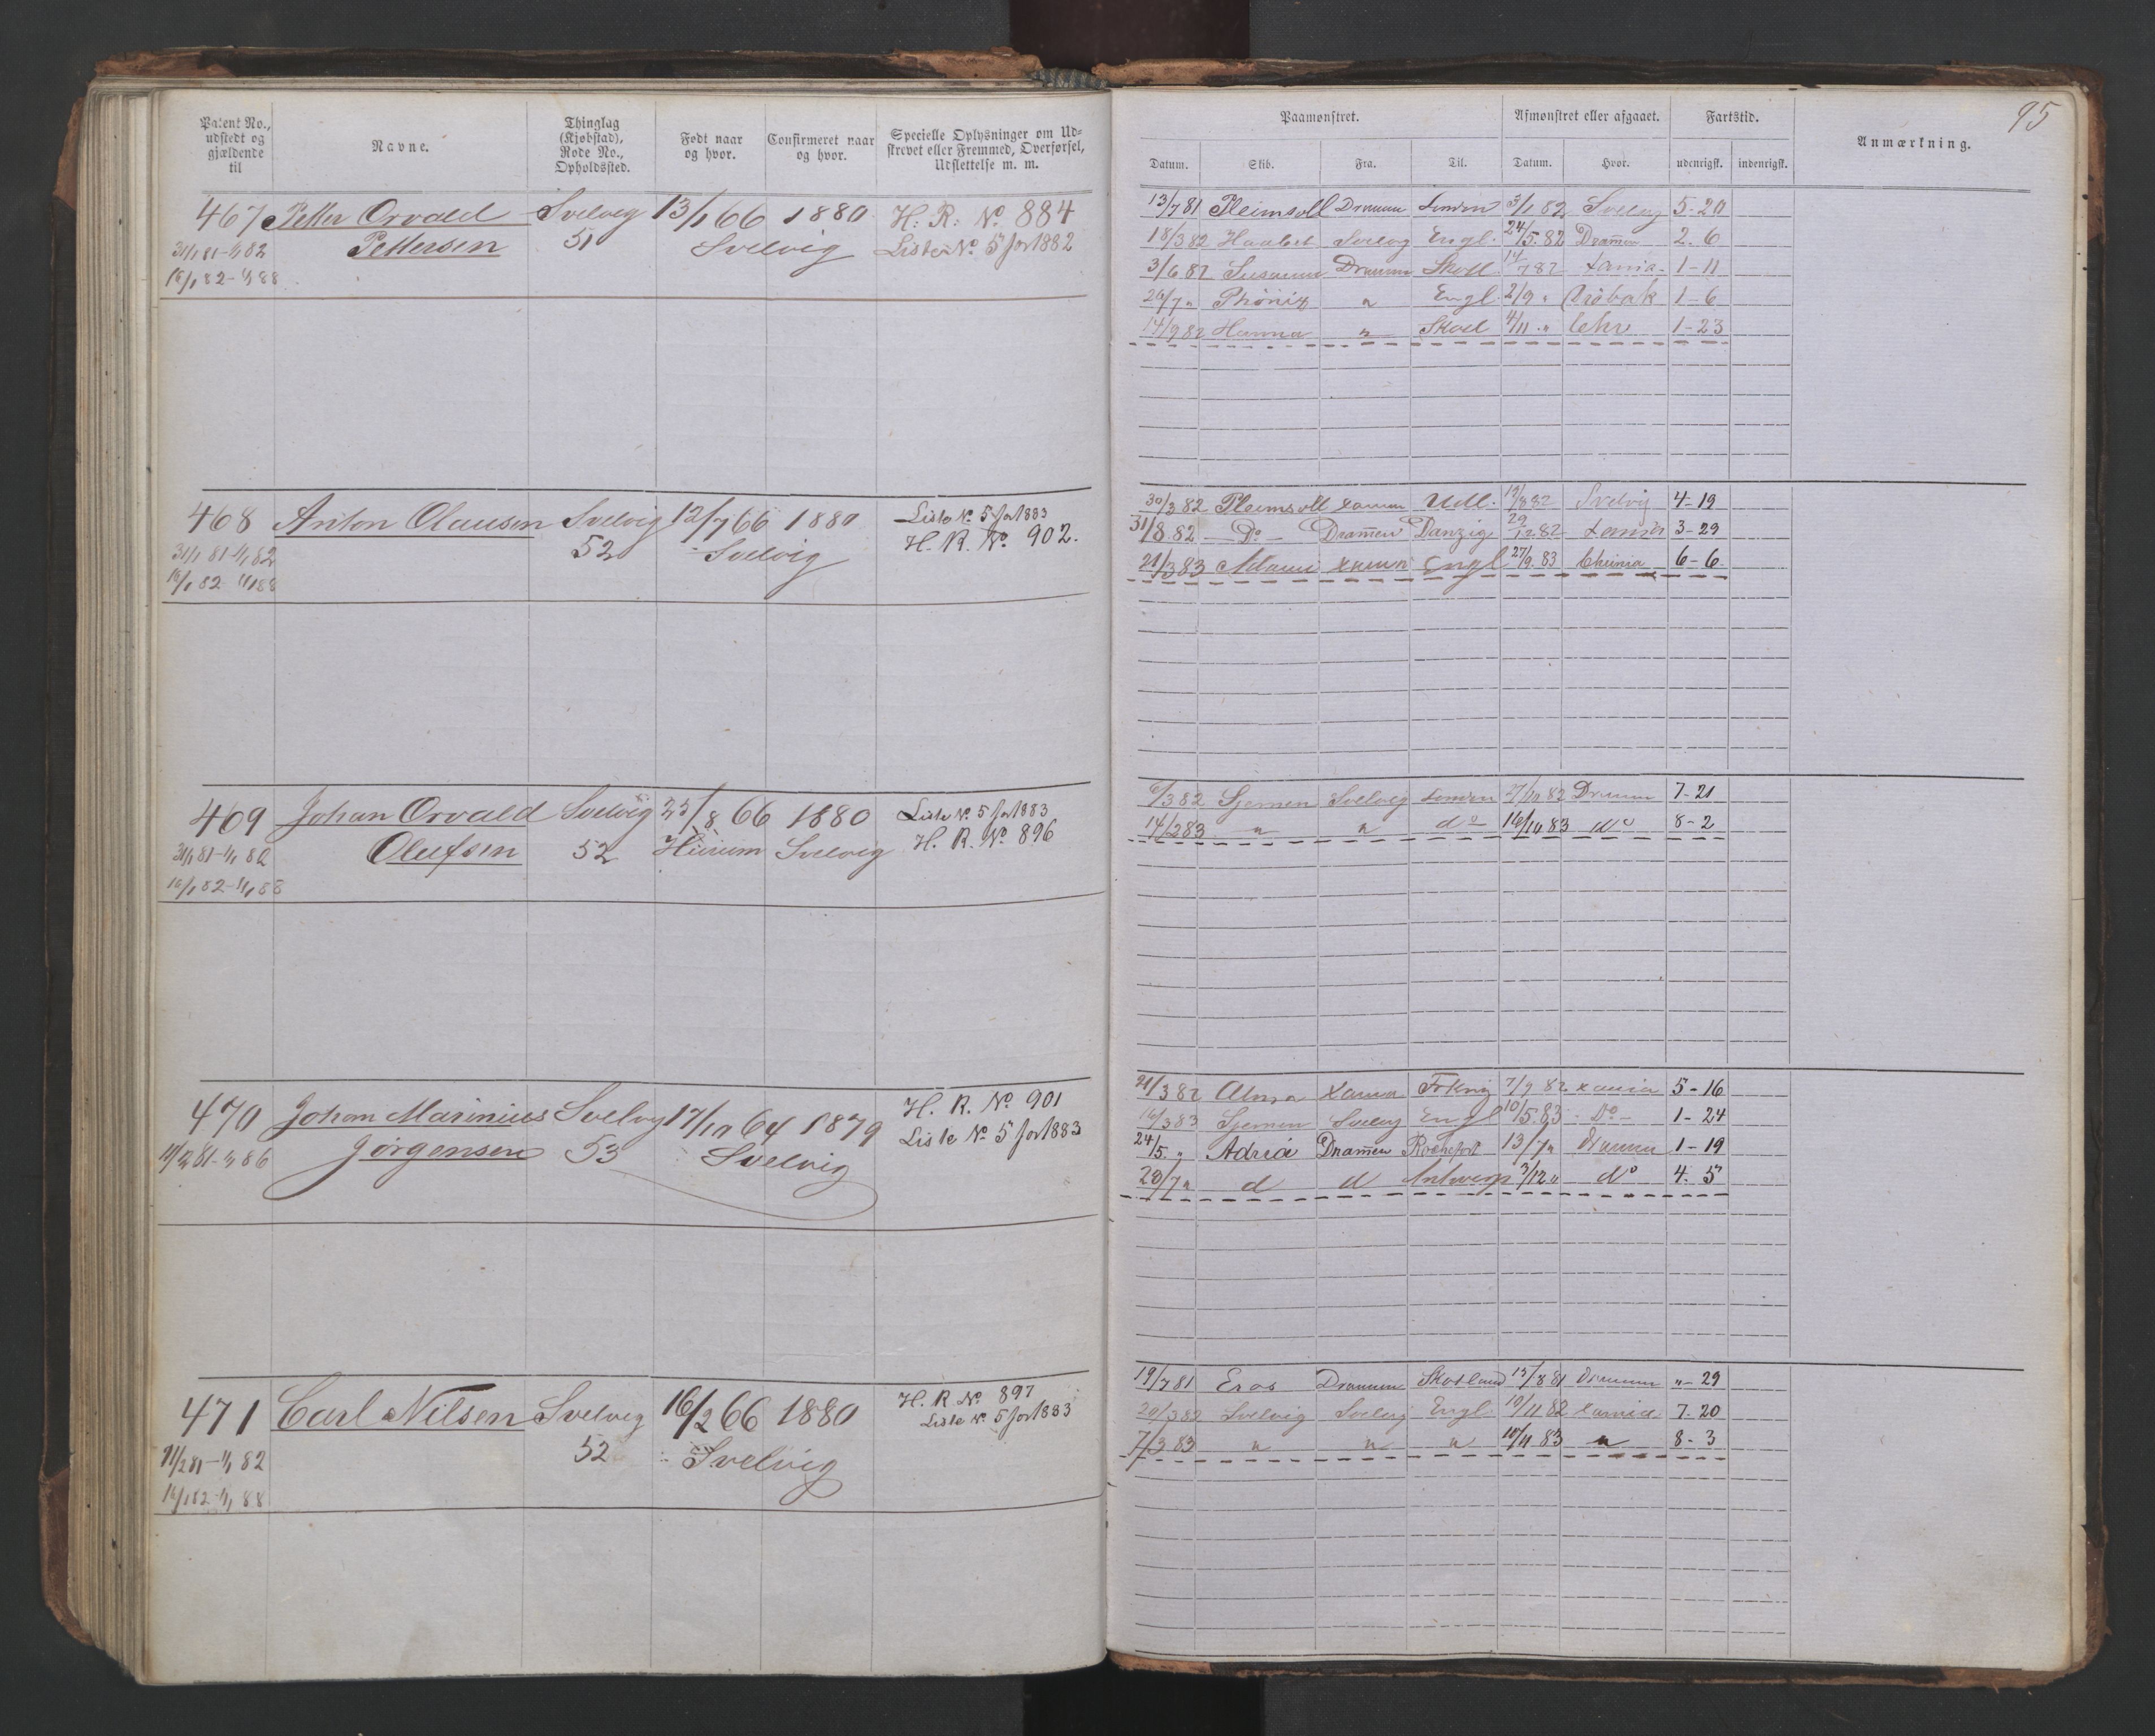 95
Patent No., udstedt og gjældende til
Navne.
Thinglag (Kjøbstad), Rode No., Opholdssted.
Født naar og hvor.
Confirmeret naar og hvor.
Specielle Oplysninger om Udskrevet eller Fremmed, Overførsel, Udslettelse m. m.
Paamønstret.
Afmønstret eller afgaaet.
Fartstid.
Anmærkning.
Datum. Skib. Fra. Til. Datum. Hvor. udenrigsk. indenrigsk.
467 Petter Orvald Svelvig 13/1 66 1880 H. R. No. 884
31/1 81-1/1 82 Pettersen 51 Svelvig Liste No. 5 for 1882
16/1 82-1/1 88
13/7 81 Pleimsoll Drammen London 3/1 82 Svelvig 5-20
18/3 82 Svelvig Engl. 24/5. 82 Drammen 2. 6
3/6 82 Susanna Drammen Skotl 14/7 82 Xania 1-11
26/7 " Phönix " Engl. 2/9 " 1-6
14/9 82 Hanna " Skotl 4/11 " Chr 1-23
468 Anton Olausen Svelvig 12/7 66 1880 Liste No. 5 for 1883
31/1 81-1/1 82 52 Svelvig H. R. No. 902.
16/1 82-1/1 88
30/3 82 Pleimsoll Xania Udl. 19/8 82 Svelvig 4-19
31/8. 82 - Do - Drammen Danzig 29/12 82 3-29
21/3 83 Xania Engl 27/9. 83 Chrinia 6-6
469 Johan Orvald Svelvig 25/8 66 1880 Liste No. 5 for 1883
31/1 81-1/1 82 Olufsen 52 Hurum Svelvig H. R. No. 896
16/1 82-1/1 88
6/3 82 Stjernen Svelvig London 27/10 82 Drammen 7-21
14/2 83 " " do 16/10 83 do 8-2
470 Johan Marinius Svelvig 17/10 64 1879 H. R. No 901
11/2 81-1/1 86 Jörgensen 53 Svelvig Liste No. 5 for 1883
21/3 82 Alma Xania 7/9 82 Xania 5-16
16/3 83 Stjernen Svelvig Engl 10/5. 83 - Do - 1-24
24/5. " Adria Drammen Rochefort 13/7 " Drammen 1-19
28/7 " d d Antwerp 3/12 " do 4. 5
471 Carl Nilsen Svelvig 16/2 66 1880 H. R No 897
11/2 81-1/1 82 52 Svelvig Liste No. 5 for 1883
16/1 82-1/1 88
19/7 81 Eros Drammen Skotland 15/8 81 Drammen "-29
20/3 82 Svelvig Svelvig Engl 10/11 82 Xania 7. 20
7/3 83 " " " 10/11 83 " 8-3